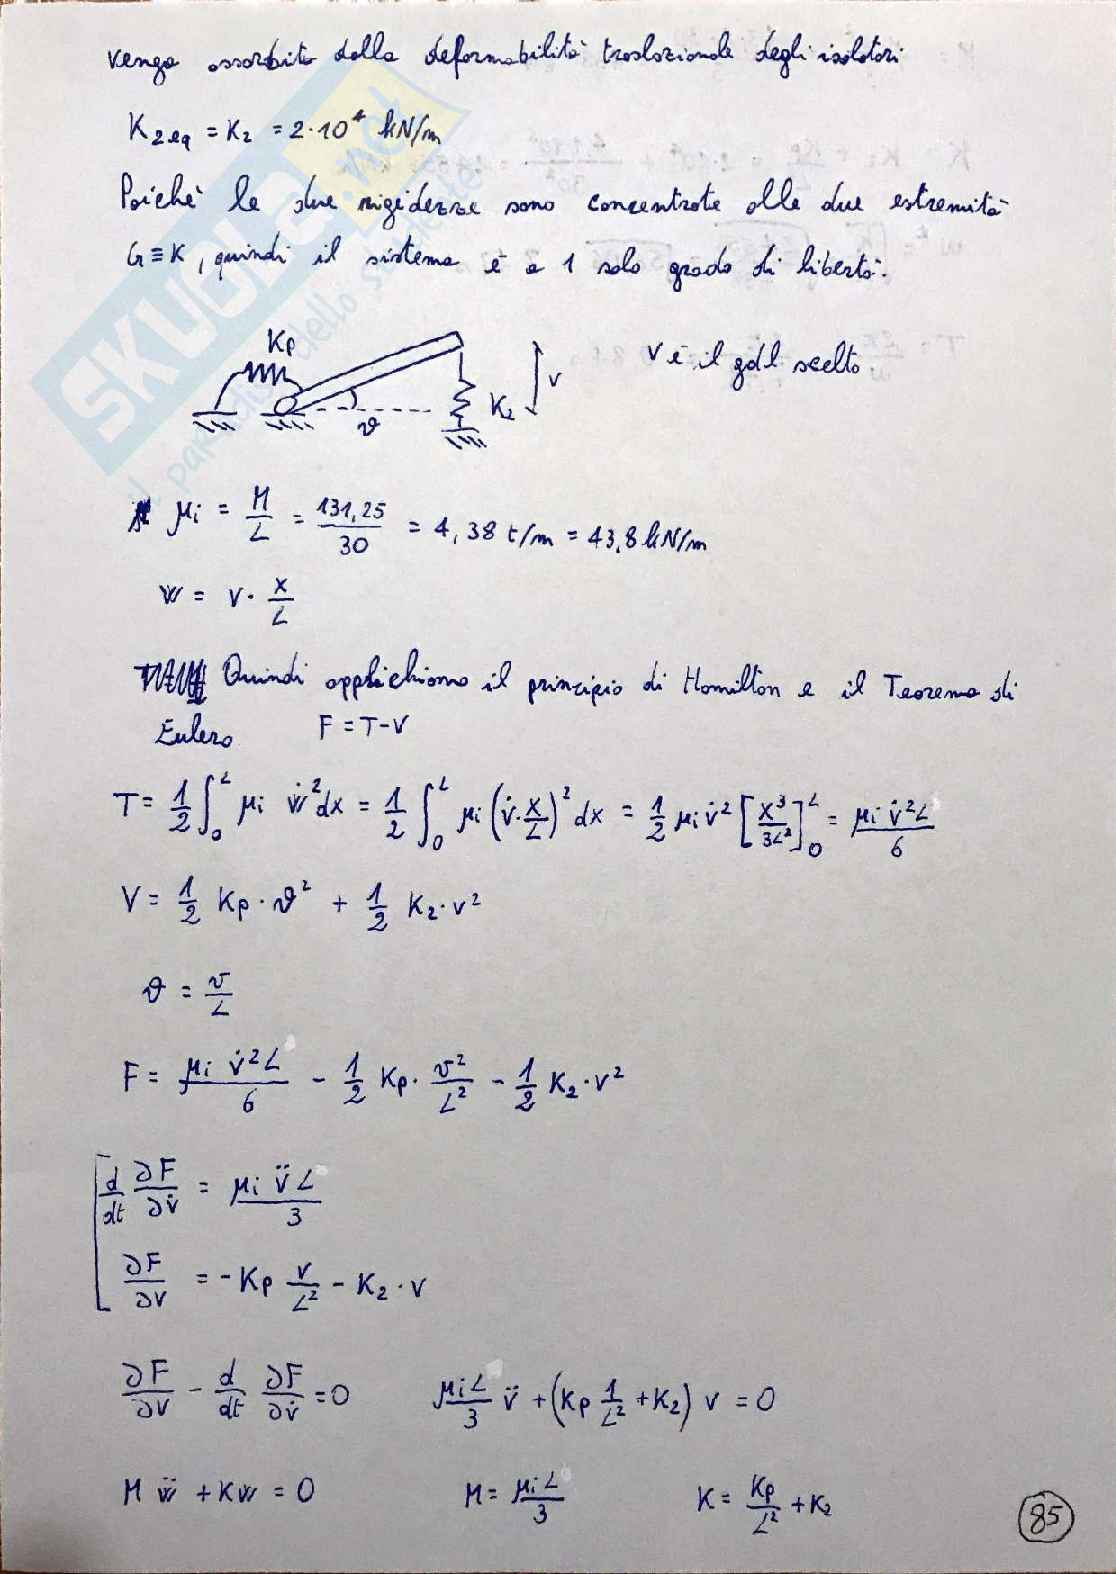 venga assorbito dalla deformabilità traslazionale degli isolatori
K2eq = K2 = 2·10⁴ kN/m
Poichè le due rigidezze sono concentrate alle due estremità
G ≡ K, quindi il sistema è a 1 solo grado di libertà.
Kp
V è il gdl scelto
v
K2
ϑ
μi = M/L = 131,25/30 = 4,38 t/m = 43,8 kN/m
w = v · x/L
Quindi applichiamo il principio di Hamilton e il Teorema di
Eulero F = T-V
T = 1/2 ∫₀ᴸ μi ẇ² dx = 1/2 ∫₀ᴸ μi (v̇ · x/L)² dx = 1/2 μi v̇² [x³/3L²]₀ᴸ = μi v̇² L/6
V = 1/2 Kp · ϑ² + 1/2 K2 · v²
ϑ = v/L
F = μi v̇² L/6 - 1/2 Kp · v²/L² - 1/2 K2 · v²
d/dt ∂F/∂v̇ = μi v̈ L/3
∂F/∂v = -Kp v/L² - K2 · v
∂F/∂v - d/dt ∂F/∂v̇ = 0 μi L/3 v̈ + (Kp 1/L² + K2) v = 0
M ẅ + K w = 0 M = μi L/3 K = Kp/L² + K2
85
SKUOLA.net